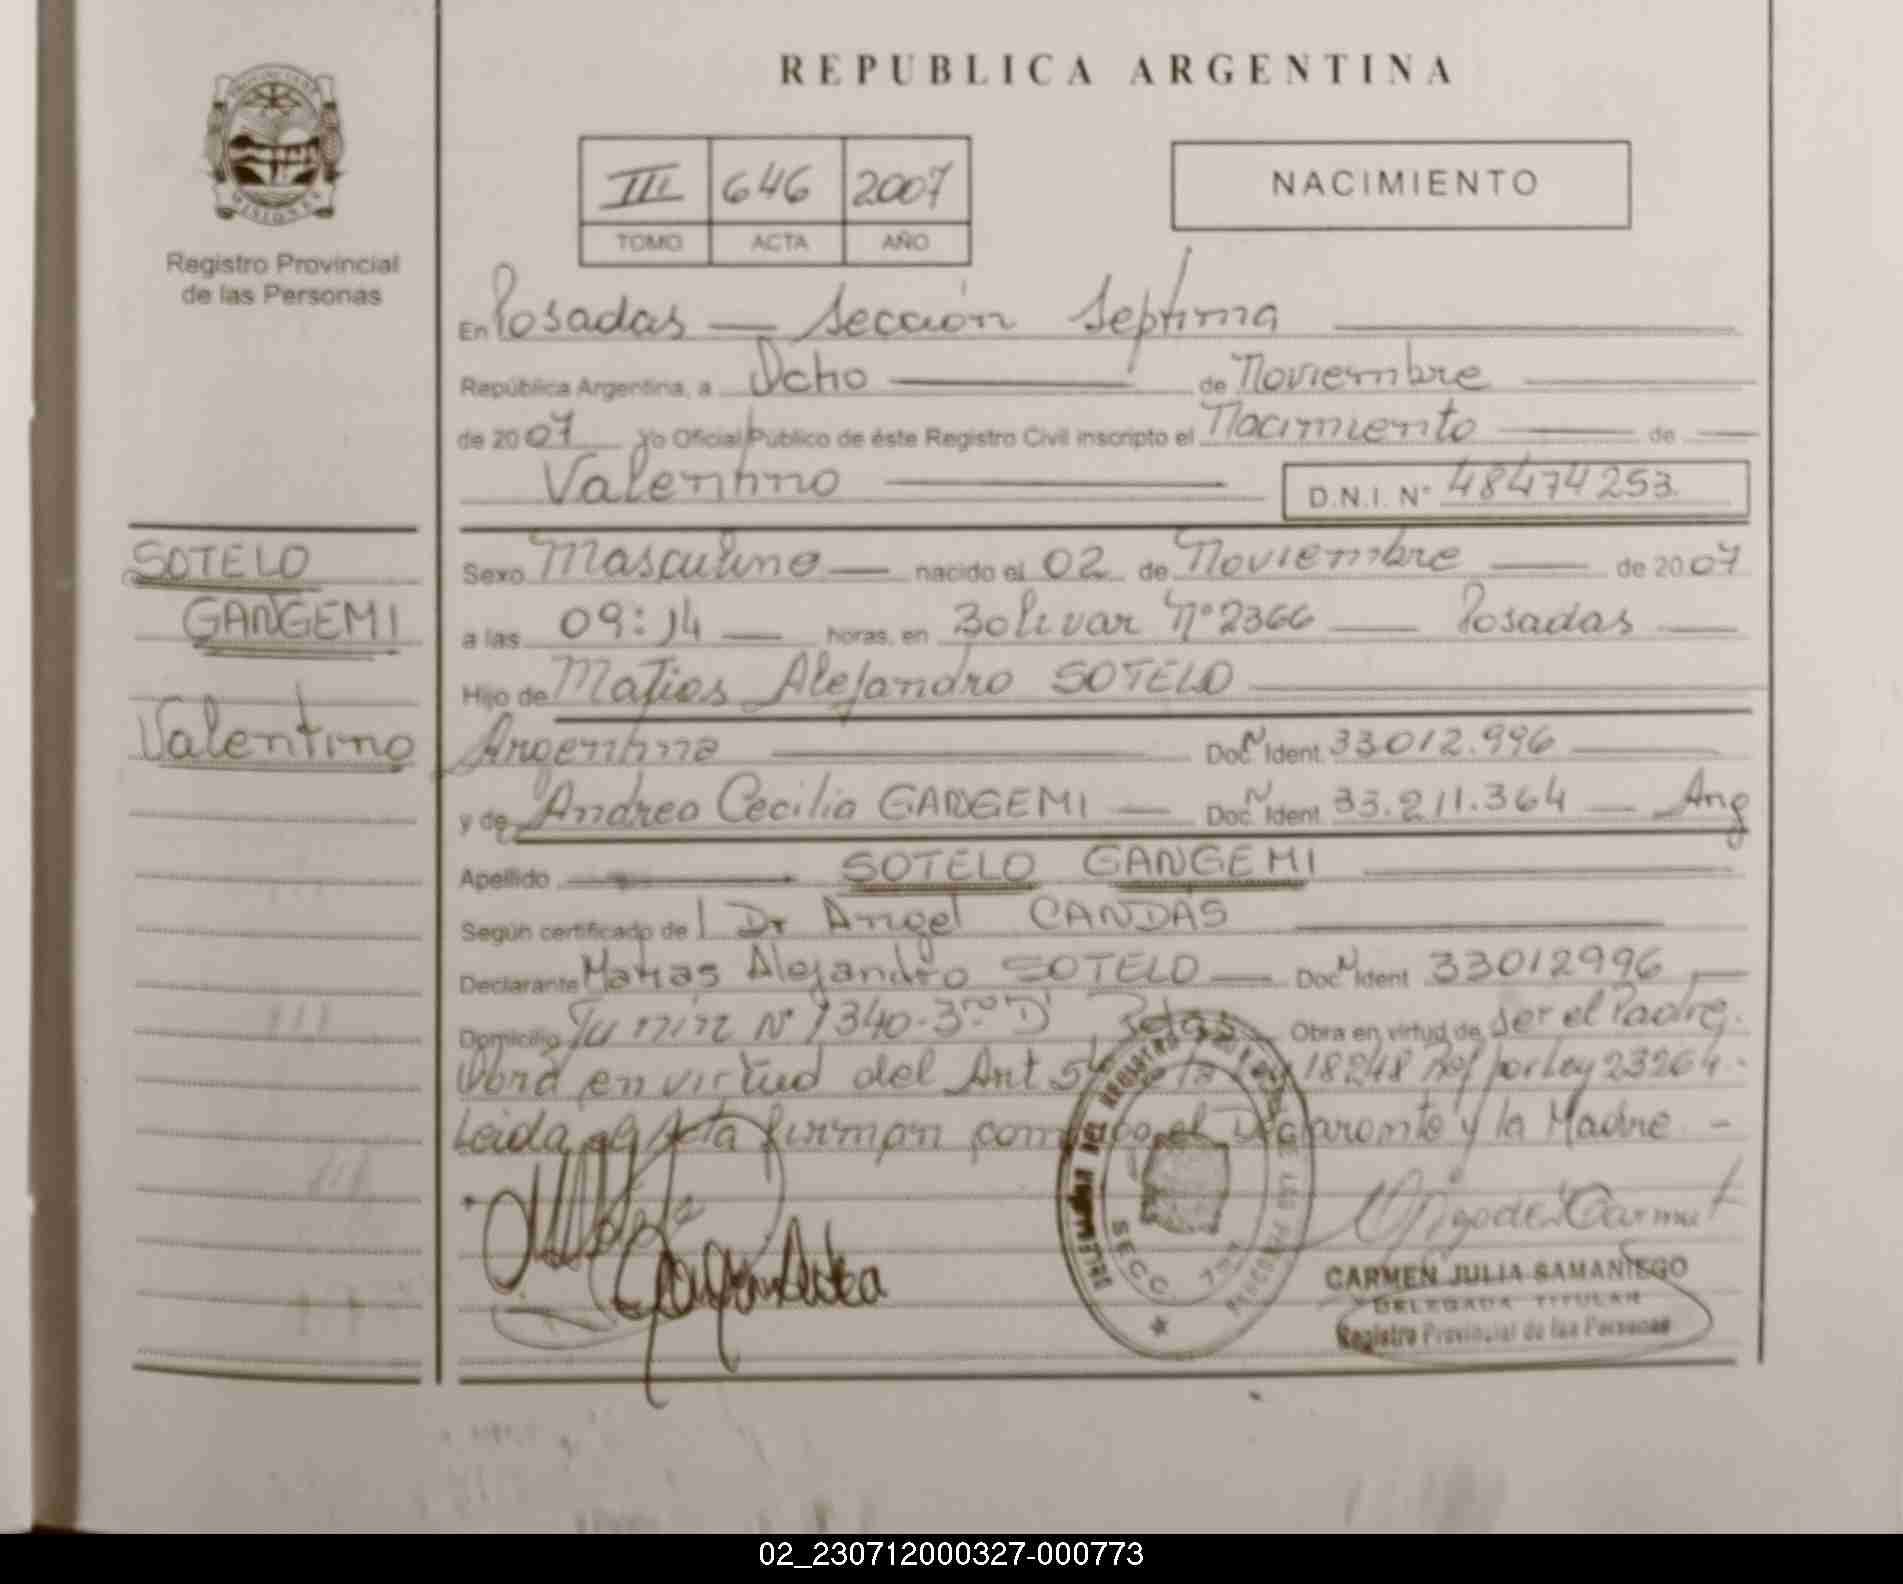 REPUBLICA ARGENTINA
PROVINCIA DE
MISIONES
Registro Provincial
de las Personas
III 646 2007
TOMO ACTA AÑO
NACIMIENTO
En Posadas — Sección Septima
República Argentina, a Ocho de Noviembre
de 2007 Yo Oficial Público de éste Registro Civil inscripto el Nacimiento de
Valentino D.N.I. Nº 48474253
SOTELO
GANGEMI
Valentino
Sexo Masculino — nacido el 02 de Noviembre — de 2007
a las 09:14 — horas, en Bolivar Nº 2366 — Posadas —
Hijo de Matias Alejandro SOTELO
Argentina Doc. N Ident. 33012.996
y de Andrea Cecilia GANGEMI — Doc. N Ident. 33.211.364 — Arg
Apellido SOTELO GANGEMI
Según certificado del Dr Angel CANDAS
Declarante Matias Alejandro SOTELO — Doc. N Ident 33012996
Domicilio Junin Nº 1340-3ro D Pdas. Obra en virtud de ser el Padre.
Obra en virtud del Art 5 18248 Ref por Ley 23264.
Leida el Acta firman conmigo el Declarante y la Madre -
SECC 7
CARMEN JULIA SAMANIEGO
DELEGADA TITULAR
Registro Provincial de las Personas
02_230712000327-000773